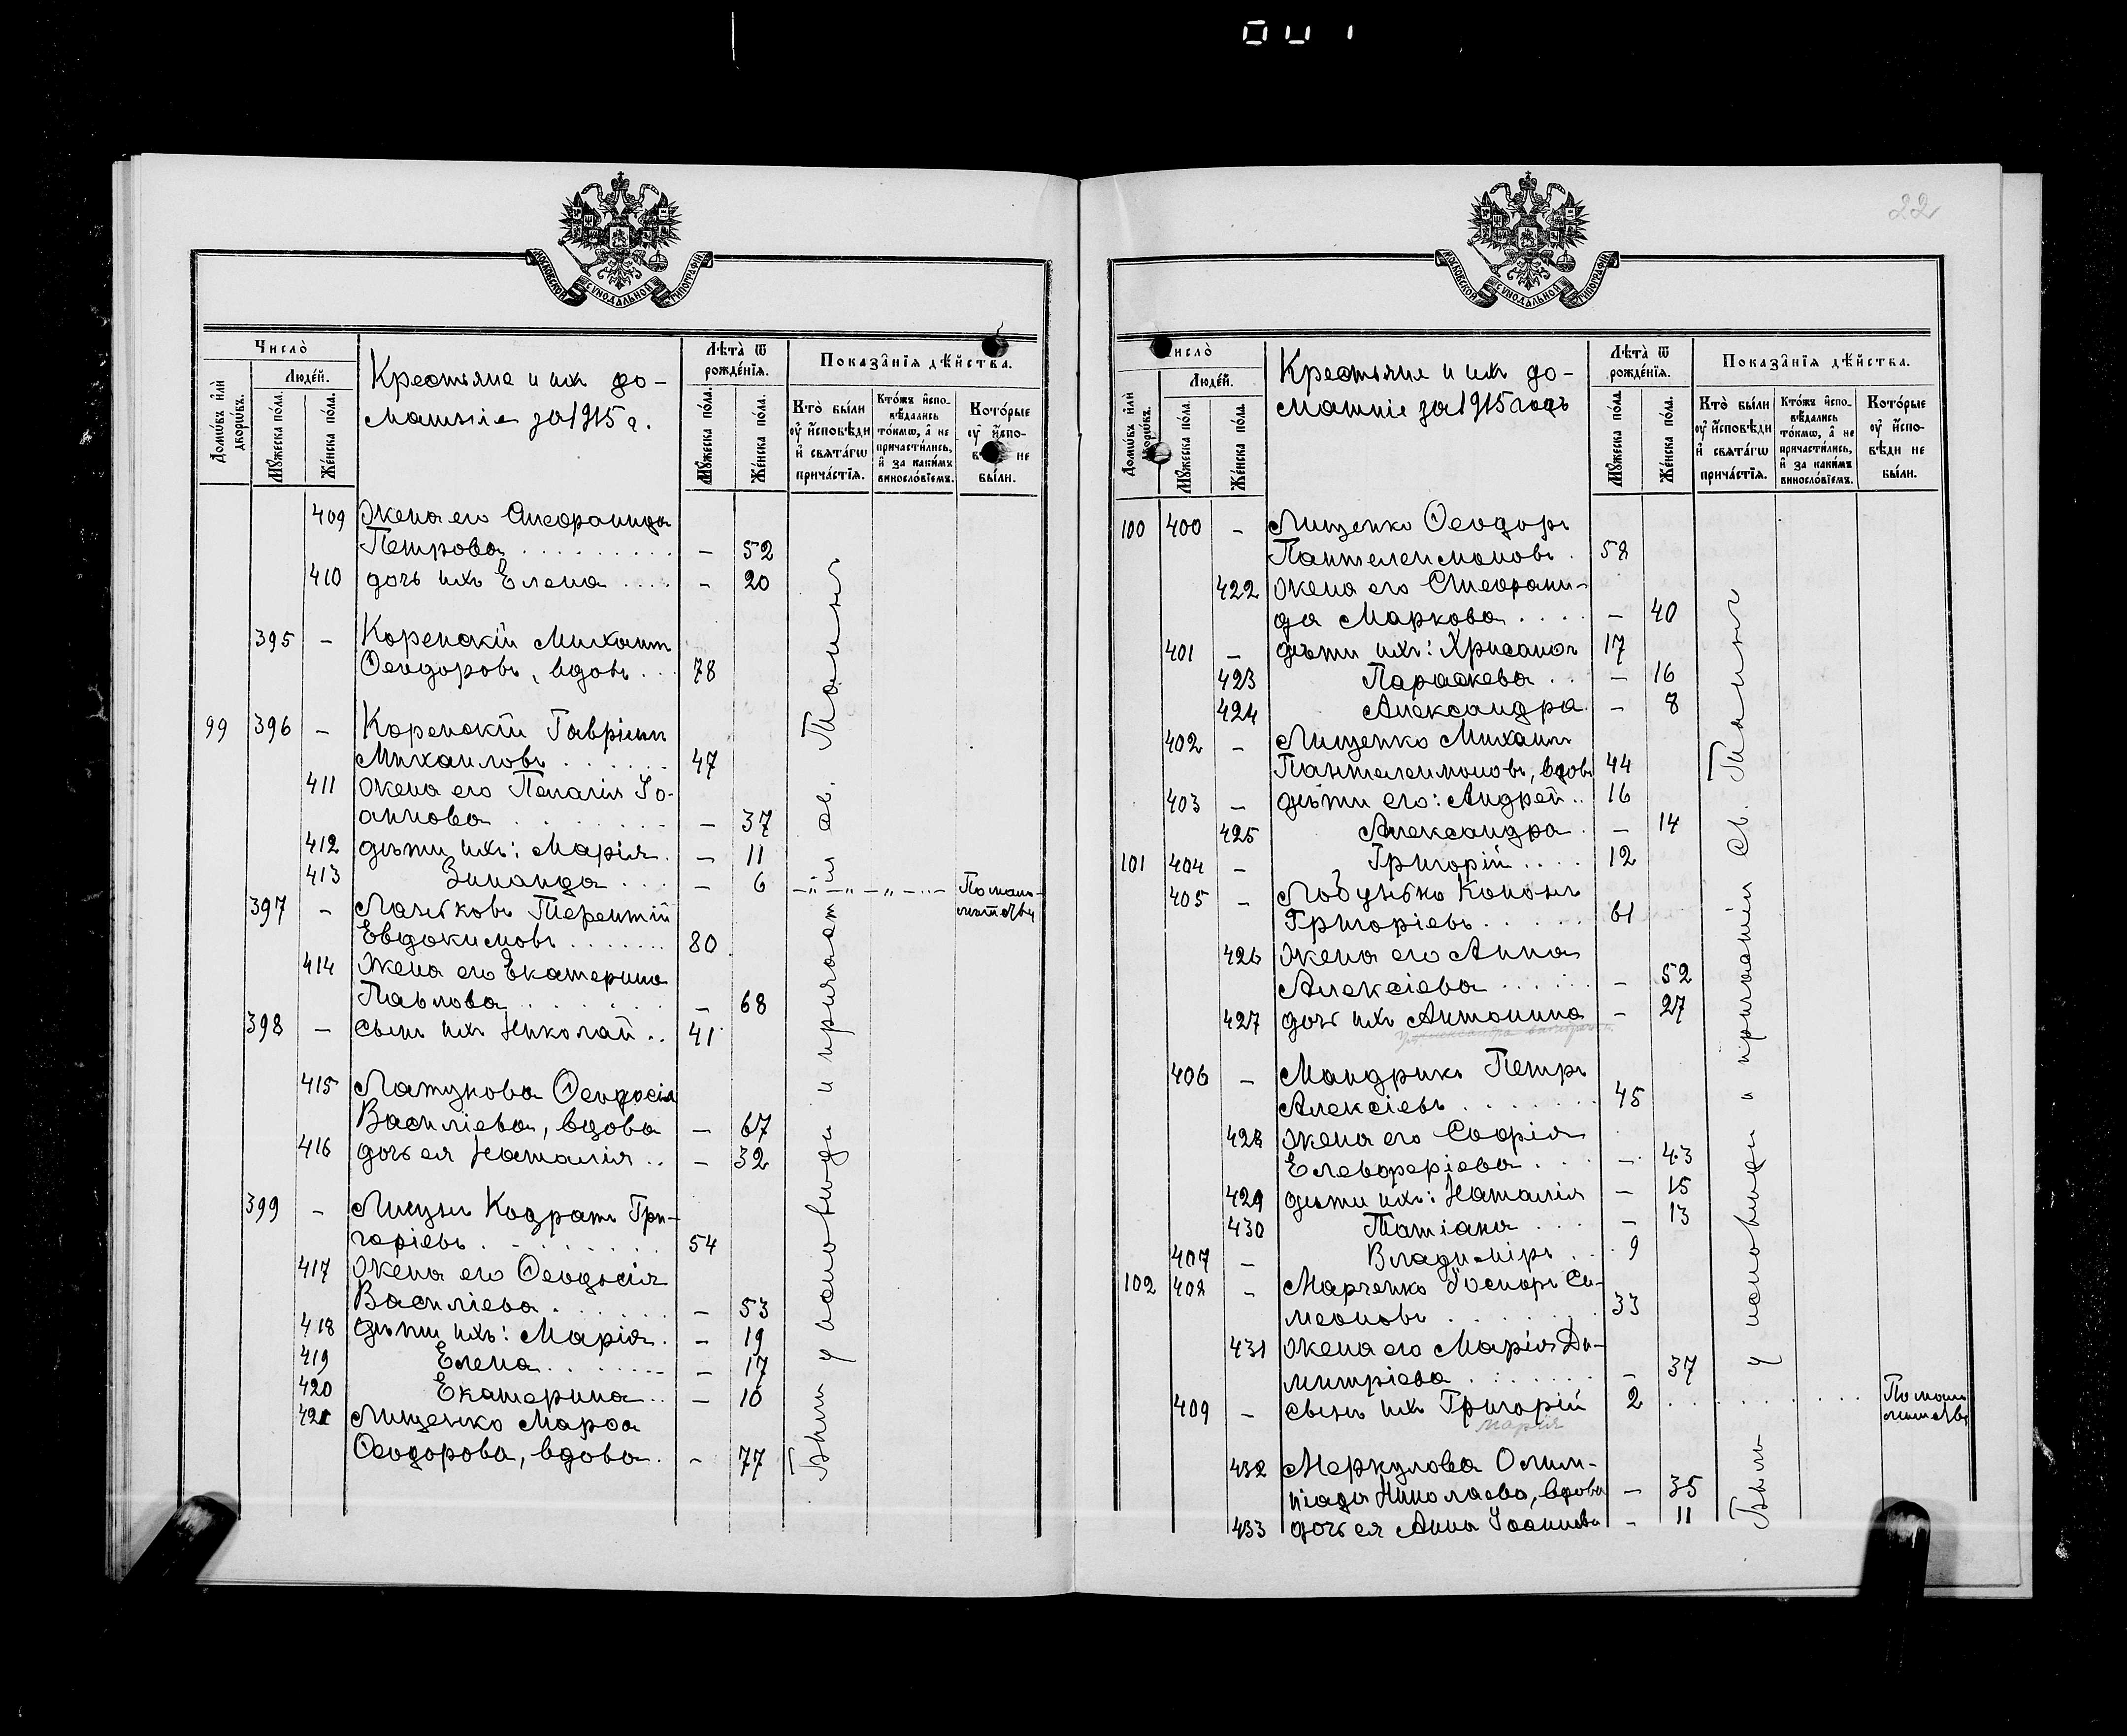 22
МОСКОВСКОЙ СѴНОДАЛЬНОЙ ТИПОГРАФІИ
Число̀
Люде́й.
Домѡ́въ и҆лѝ дворѡ́въ.
Мꙋ́жеска по́ла.
Же́нска по́ла.
Крестьяне и ихъ до-
машніе за 1915 г.
Лѣ́та ѿ рожде́нїѧ.
Мꙋ́жеска по́ла.
Же́нска по́ла.
Показа̑нїѧ дѣ́йства.
Кто̀ бы́ли оу҆ и҆сповѣди и҆ свѧта́гѡ прича́стїѧ.
Кто́жъ и҆спо-вѣдались то́кмѡ, а҆ не причасти́лись, и҆ за каки́мъ виносло́вїемъ.
Кото́рые оу҆ и҆спо-вѣди не бы́ли.
409 Жена его Синфроніида
Петрова — 52
410 дочь ихъ Елена — 20
395 — Коренскій Михаилъ
Ѳеодоровъ, вдовъ 78
99 396 — Коренскій Гавріилъ
Михаиловъ 47
411 Жена его Пелагія Іо-
аннова — 37
412 дѣти ихъ: Марія — 11
413 Зинаида — 6 По мало-
лѣтству
397 — Терентій
Евдокимовъ 80
414 Жена его Екатерина
Павлова — 68
398 — сынъ ихъ Николай 41
415 Латунова Ѳеодосія
Василіева, вдова — 67
416 дочь ея Наталія — 32
399 — Кодратъ Гри-
горіевъ 54
417 Жена его Ѳеодосія
Василіева — 53
418 дѣти ихъ: Марія — 19
419 Елена — 17
420 Екатерина — 10
421 Лищенко Марѳа
Ѳеодорова, вдова — 77
Были у исповѣди и причастія св. Таинъ
МОСКОВСКОЙ СѴНОДАЛЬНОЙ ТИПОГРАФІИ
Число̀
Люде́й.
Домѡ́въ и҆лѝ дворѡ́въ.
Мꙋ́жеска по́ла.
Же́нска по́ла.
Крестьяне и ихъ до-
машніе за 1915 годъ
Лѣ́та ѿ рожде́нїѧ.
Мꙋ́жеска по́ла.
Же́нска по́ла.
Показа̑нїѧ дѣ́йства.
Кто̀ бы́ли оу҆ и҆сповѣди и҆ свѧта́гѡ прича́стїѧ.
Кто́жъ и҆спо-вѣдались то́кмѡ, а҆ не причасти́лись, и҆ за каки́мъ виносло́вїемъ.
Кото́рые оу҆ и҆спо-вѣди не бы́ли.
100 400 — Лищенко Ѳеодоръ
Пантелеимоновъ 58
422 жена его
Маркова — 40
401 — дѣти ихъ: Хрисанѳъ 17
423 Параскева — 16
424 Александра — 8
402 — Лищенко Михаилъ
Пантелеимоновъ, вдовъ 44
403 — дѣти его: Андрей 16
425 Александра — 14
101 404 — Григорій 12
405 — Кононъ
Григоріевъ 61
426 Жена его Анна
Алексіева — 52
427 дочь ихъ Антонина — 27
406 — Мандрикъ Петръ
Алексіевъ 45
428 жена его Софія
Елевферіева — 43
429 дѣти ихъ: Наталія — 15
430 Татіана — 13
407 — Владиміръ 9
102 408 — Марченко Іосифъ Си-
меоновъ 33
431 Жена его Марія Ди-
митріева — 37
409 — сынъ ихъ Григорій 2 По мало-
лѣтству
Марія
432 Меркулова Олим-
піада Николаева, вдова — 35
433 дочь ея Анна Іоаннова — 11
Были у исповѣди и причастія св. Таинъ